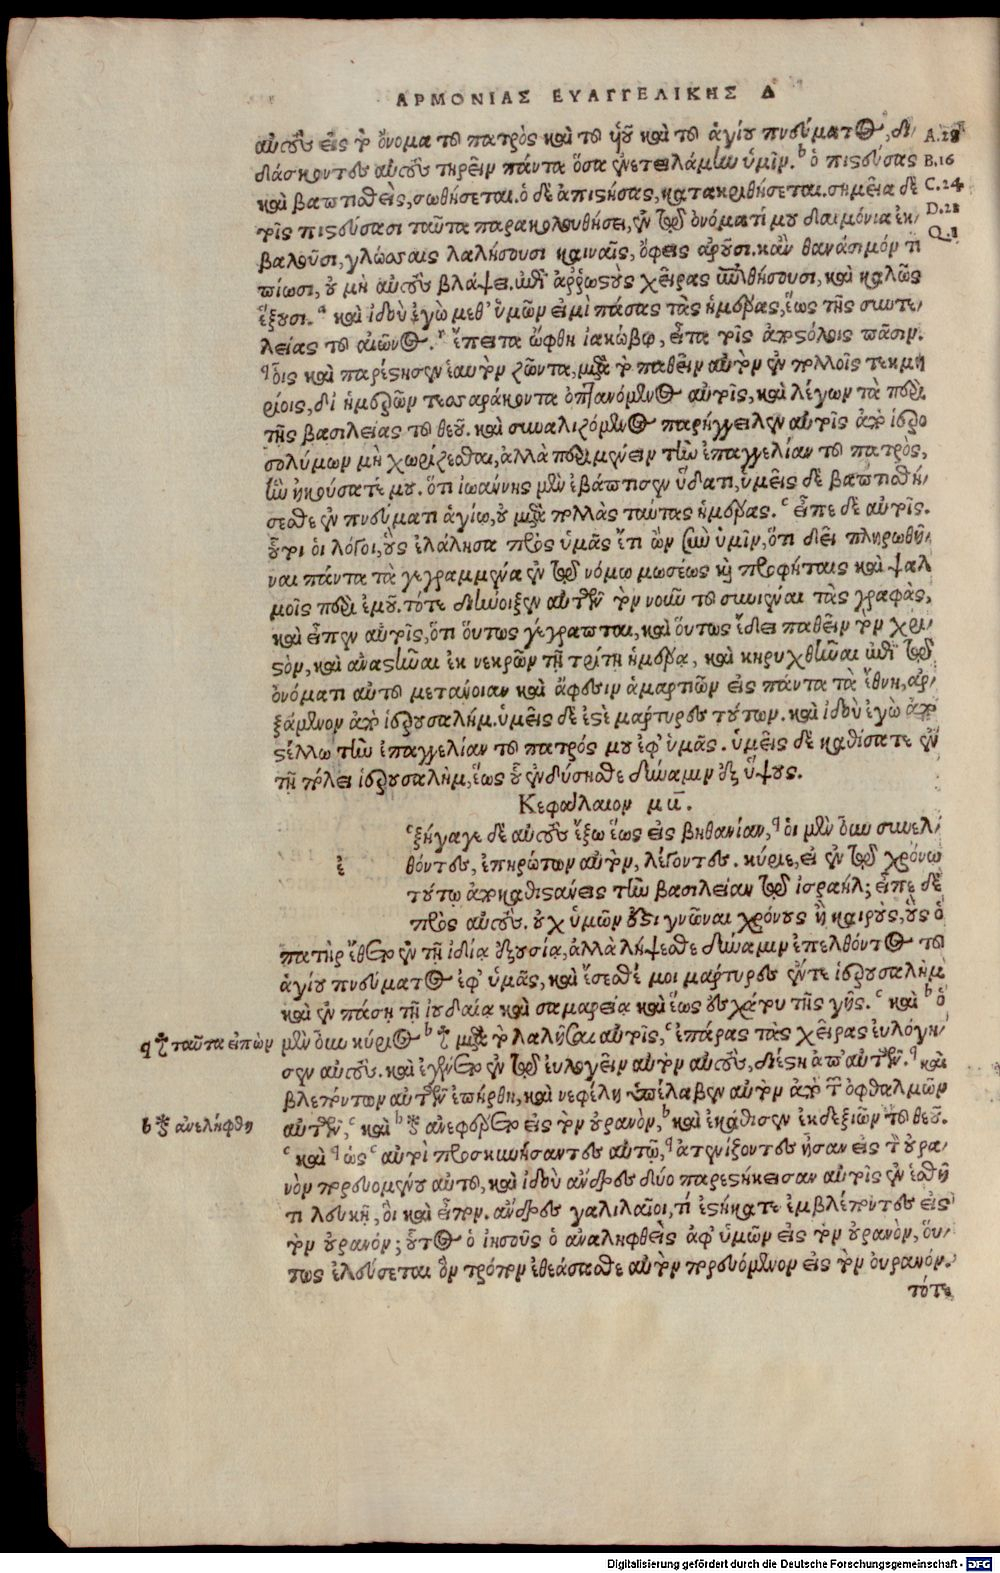 ΑΡΜΟΝΙΑΣ ΕΥΑΓΓΕΛΙΚΗΣ Δ
αὐτοὺς εἰς τὸ ὄνομα τοῦ πατρὸς καὶ τοῦ ἡοῦ καὶ τοῦ ἁγίου πνεύματος, δι A.28
διάσκοντες αὐτοὺς τηρεῖν πάντα ὅσα ἐνετειλάμην ὑμῖν. b ὁ πιστεύσας B.16
καὶ βαπτισθεὶς, σωθήσεται. ὁ δὲ ἀπιστήσας, κατακριθήσεται. σημεῖα δὲ C.24
τοῖς πιστεύσασι ταῦτα παρακολουθήσει, ἐν τῷ ὀνόματί μου δαιμόνια ἐκ D.21
βαλοῦσι, γλώσσαις λαλήσουσι καιναῖς, ὄφεις ἀροῦσι. κἂν θανάσιμόν τι Q.1
πίωσι, οὐ μὴ αὐτοὺς βλάψει. ἐπὶ ἀῤῥώστους χεῖρας ἐπιθήσουσι, καὶ καλῶς
ἕξουσι. a καὶ ἰδοὺ ἐγὼ μεθ' ὑμῶν εἰμὶ πάσας τὰς ἡμέρας, ἕως τῆς συντε
λείας τοῦ αἰῶνος. ἔπειτα ὤφθη ἰακώβῳ, εἶτα τοῖς ἀποστόλοις πᾶσιν.
q οἷς καὶ παρέστησεν ἑαυτὸν ζῶντα, μετὰ τὸ παθεῖν αὐτὸν ἐν πολλοῖς τεκμη
ρίοις, δι' ἡμερῶν τεσσαράκοντα ὀπτανόμενος αὐτοῖς, καὶ λέγων τὰ περὶ
τῆς βασιλείας τοῦ θεοῦ. καὶ συναλιζόμενος παρήγγειλεν αὐτοῖς ἀπὸ ἱερο
σολύμων μὴ χωρίζεσθαι, ἀλλὰ περιμένειν τὴν ἐπαγγελίαν τοῦ πατρὸς,
ἣν ἠκούσατέ μου. ὅτι ἰωάννης μὲν ἐβάπτισεν ὕδατι, ὑμεῖς δὲ βαπτισθή
σεσθε ἐν πνεύματι ἁγίῳ, οὐ μετὰ πολλὰς ταύτας ἡμέρας. c εἶπε δὲ αὐτοῖς.
οὗτοι οἱ λόγοι, οὓς ἐλάλησα πρὸς ὑμᾶς ἔτι ὢν σὺν ὑμῖν, ὅτι δεῖ πληρωθῆ
ναι πάντα τὰ γεγραμμένα ἐν τῷ νόμῳ μωσέως καὶ προφήταις καὶ ψαλ
μοῖς περὶ ἐμοῦ. τότε διήνοιξεν αὐτῶν τὸν νοῦν τοῦ συνιέναι τὰς γραφὰς,
καὶ εἶπεν αὐτοῖς, ὅτι οὕτως γέγραπται, καὶ οὕτως ἔδει παθεῖν τὸν χρι
στὸν, καὶ ἀναστῆναι ἐκ νεκρῶν τῇ τρίτῃ ἡμέρᾳ, καὶ κηρυχθῆναι ἐπὶ τῷ
ὀνόματι αὐτοῦ μετάνοιαν καὶ ἄφεσιν ἁμαρτιῶν εἰς πάντα τὰ ἔθνη, ἀρ
ξάμενον ἀπὸ ἱερουσαλήμ. ὑμεῖς δέ ἐστε μάρτυρες τούτων. καὶ ἰδοὺ ἐγὼ ἀπο
στέλλω τὴν ἐπαγγελίαν τοῦ πατρός μου ἐφ' ὑμᾶς. ὑμεῖς δὲ καθίσατε ἐν
τῇ πόλει ἱερουσαλὴμ, ἕως οὗ ἐνδύσησθε δύναμιν ἐξ ὕψους.
Κεφάλαιον μυ̅.
c ἐξήγαγε δὲ αὐτοὺς ἔξω ἕως εἰς βηθανίαν, q οἱ μὲν οὖν συνελ
θόντες, ἐπηρώτων αὐτὸν, λέγοντες. κύριε, εἰ ἐν τῷ χρόνῳ
τούτῳ ἀποκαθιστάνεις τὴν βασιλείαν τῷ ἰσραήλ; εἶπε δὲ
πρὸς αὐτούς. οὐχ ὑμῶν ἐστι γνῶναι χρόνους ἢ καιροὺς, οὓς ὁ
πατὴρ ἔθετο ἐν τῇ ἰδίᾳ ἐξουσίᾳ, ἀλλὰ λήψεσθε δύναμιν ἐπελθόντος τοῦ
ἁγίου πνεύματος ἐφ' ὑμᾶς, καὶ ἔσεσθέ μοι μάρτυρες ἔν τε ἱερουσαλὴμ
καὶ ἐν πάσῃ τῇ ἰουδαίᾳ καὶ σαμαρείᾳ καὶ ἕως ἐσχάτου τῆς γῆς. c καὶ b ὁ
q ταῦτα εἰπὼν
μὲν οὖν κύριος b μετὰ τὸ λαλῆσαι αὐτοῖς, c ἐπάρας τὰς χεῖρας εὐλόγη
σεν αὐτούς. καὶ ἐγένετο ἐν τῷ εὐλογεῖν αὐτὸν αὐτοὺς, διέστη ἀπ' αὐτῶν. q καὶ
βλεπόντων αὐτῶν ἐπήρθη, καὶ νεφέλη ὑπέλαβεν αὐτὸν ἀπὸ τῶν ὀφθαλμῶν
b ἀνελήφθη
αὐτῶν, c καὶ b ἀνεφέρετο εἰς τὸν οὐρανὸν, b καὶ ἐκάθισεν ἐκ δεξιῶν τοῦ θεοῦ.
c καὶ q ὡς c αὐτοὶ προσκυνήσαντες αὐτῷ, q ἀτενίζοντες ἦσαν εἰς τὸν οὐρα
νὸν πορευομένου αὐτοῦ, καὶ ἰδοὺ ἄνδρες δύο παρεστήκεισαν αὐτοῖς ἐν ἐσθῆ
τι λευκῇ, οἳ καὶ εἶπον. ἄνδρες γαλιλαῖοι, τί ἑστήκατε ἐμβλέποντες εἰς
τὸν οὐρανόν; οὗτος ὁ ἰησοῦς ὁ ἀναληφθεὶς ἀφ' ὑμῶν εἰς τὸν οὐρανὸν, οὕ
τως ἐλεύσεται ὃν τρόπον ἐθεάσασθε αὐτὸν πορευόμενον εἰς τὸν οὐρανόν.
τότε
Digitalisierung gefördert durch die Deutsche Forschungsgemeinschaft - DFG